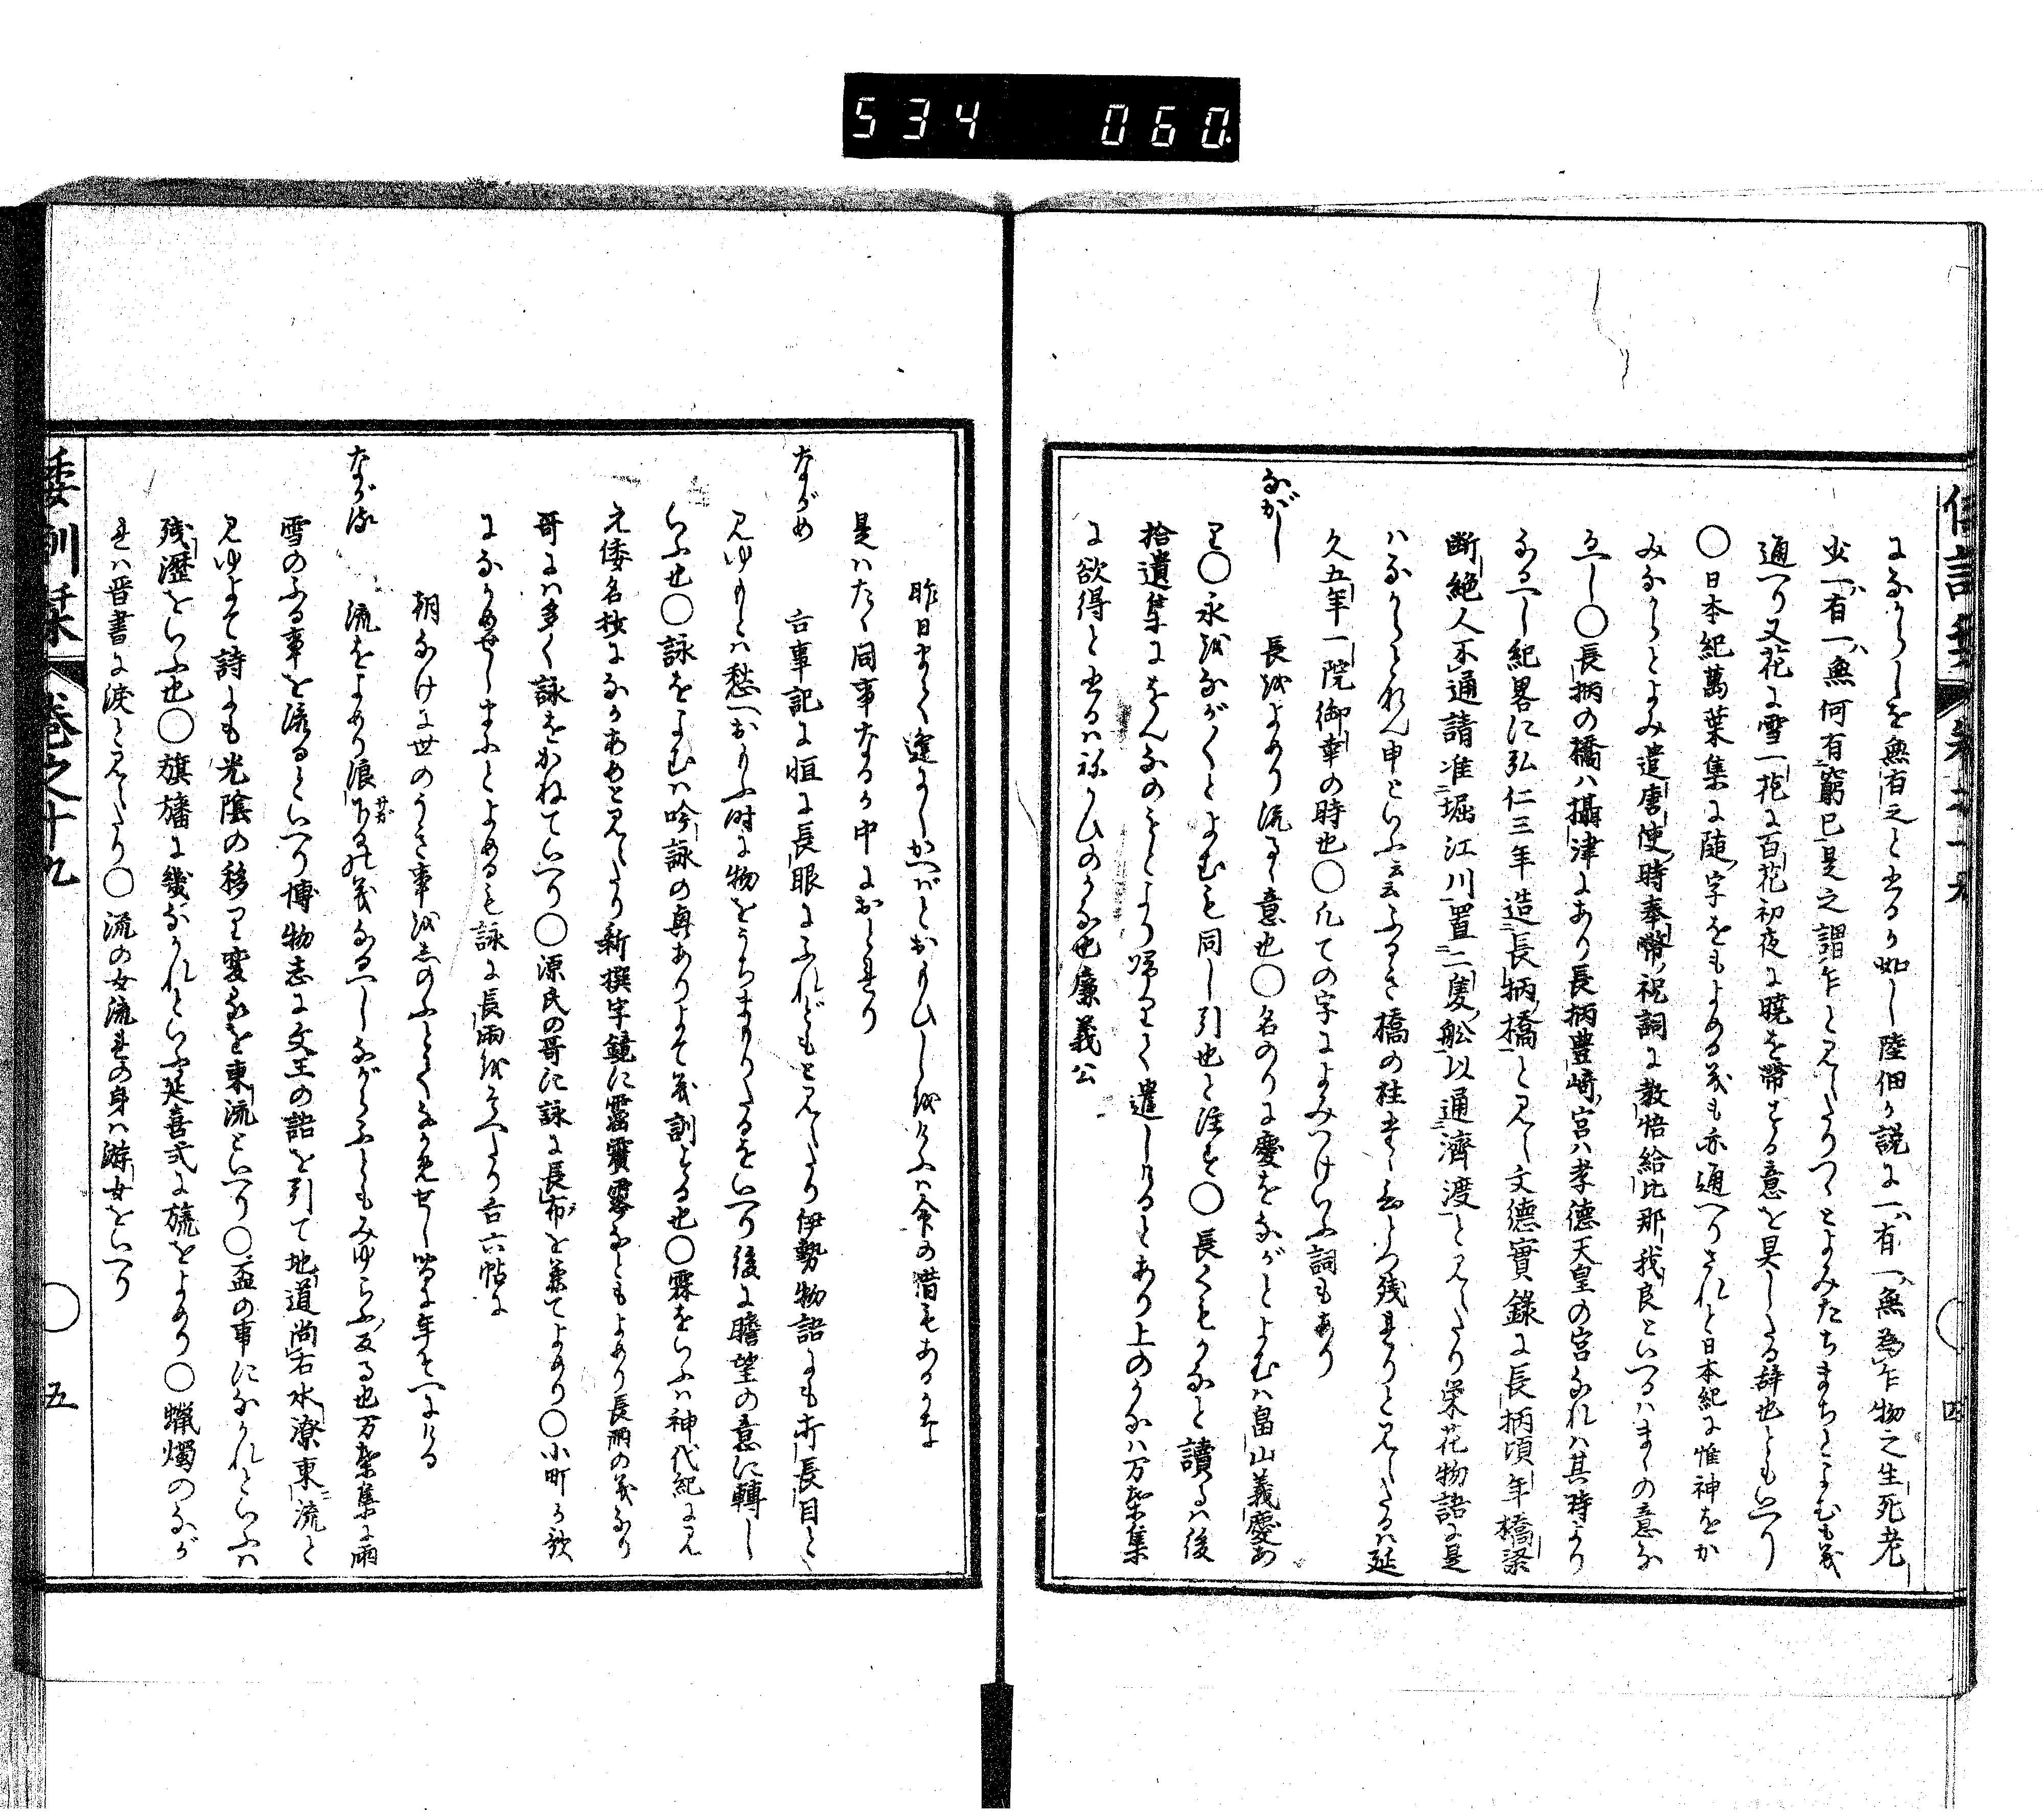 534 060
になからしを無有之と書るか如し陸佃か説に一有一無為乍物之生死老
少一有一無何有窮已是之謂乍と見えたりつゝとよみたちまちとよむも義
通へり又花に雪一抱に百花初夜に暁を帯する意を具したる辞也ともいへり
○日本紀萬葉集に随字をもよめる義も亦通へりされと日本紀に惟神をか
みなからとよみ遣唐使時奉幣祝詞に教悟給比那我良といへるはまゝの意な
るへし○長柄の橋ハ攝津にあり長柄豊崎宮ハ孝徳天皇の宮なれハ其時より
なるへし紀畧に弘仁三年造長柄橋と見え文徳實錄に長柄頃年橋梁
断絶人不通請准堀江川置二隻舩以通濟渡と見えたり栄花物語に是
ハなからとなん申といふ云云ふるき橋の柱まゝ所々残れりと見えたるハ延
久五年一院御幸の時也○凡ての字によみつけいふ詞もあり
ながし　長をよめり流るゝ意也○名のりに慶をながとよむハ畠山義慶あ
り○永をながくとよむも同し引也と注す○長くもかなと讀るハ後
拾遺集にをんなのもとより帰りて遣しけるとあり上のかなハ万葉集
に欲得と書るハねかひのかな也廉義公
四
昨日まて逢にしかへばとおもひしをけふハ命の惜くもあるかな
是ハたゝ同事なるか中におとれり
ながめ　古事記に恒に長眼にふれどもと見えたり伊勢物語にも亦長目と
見ゆもとハ愁へおもふ時に物をうちまもりたるをいへり後に瞻望の意に轉し
いふ也○詠をよむハ吟詠の奥ありよて義訓せる也○霖をいふハ神代紀に見
え倭名抄になかあめと見えたり新撰字鏡に霤霣零なともよめり長雨の義なり
哥にハ多く詠をかねていへり○源氏の哥に詠に長布を兼てよめり○小町か歌
になかめせしまにとよめるも詠に長雨をそへたり古六帖に
朝なけに世のうき事をしのふとてなかめせしまに年そへにける
ながる　流をよめり浪下るの義なるへしながらふともみゆらふ反る也万葉集に雨
雪のふる事を流るといへり博物志に文王の語を引て地道尚右水潦東流と
見ゆよて詩にも光陰の移り変るを東流といへり○盃の事になかれといふハ
残瀝をいふ也○旗旙に幾ながれといふ延喜式に旒をよめり○蝋燭のなが
れハ晋書に涙と見えたり○流の女流れの身ハ游女をいへり
倭訓栞　巻之十九　五